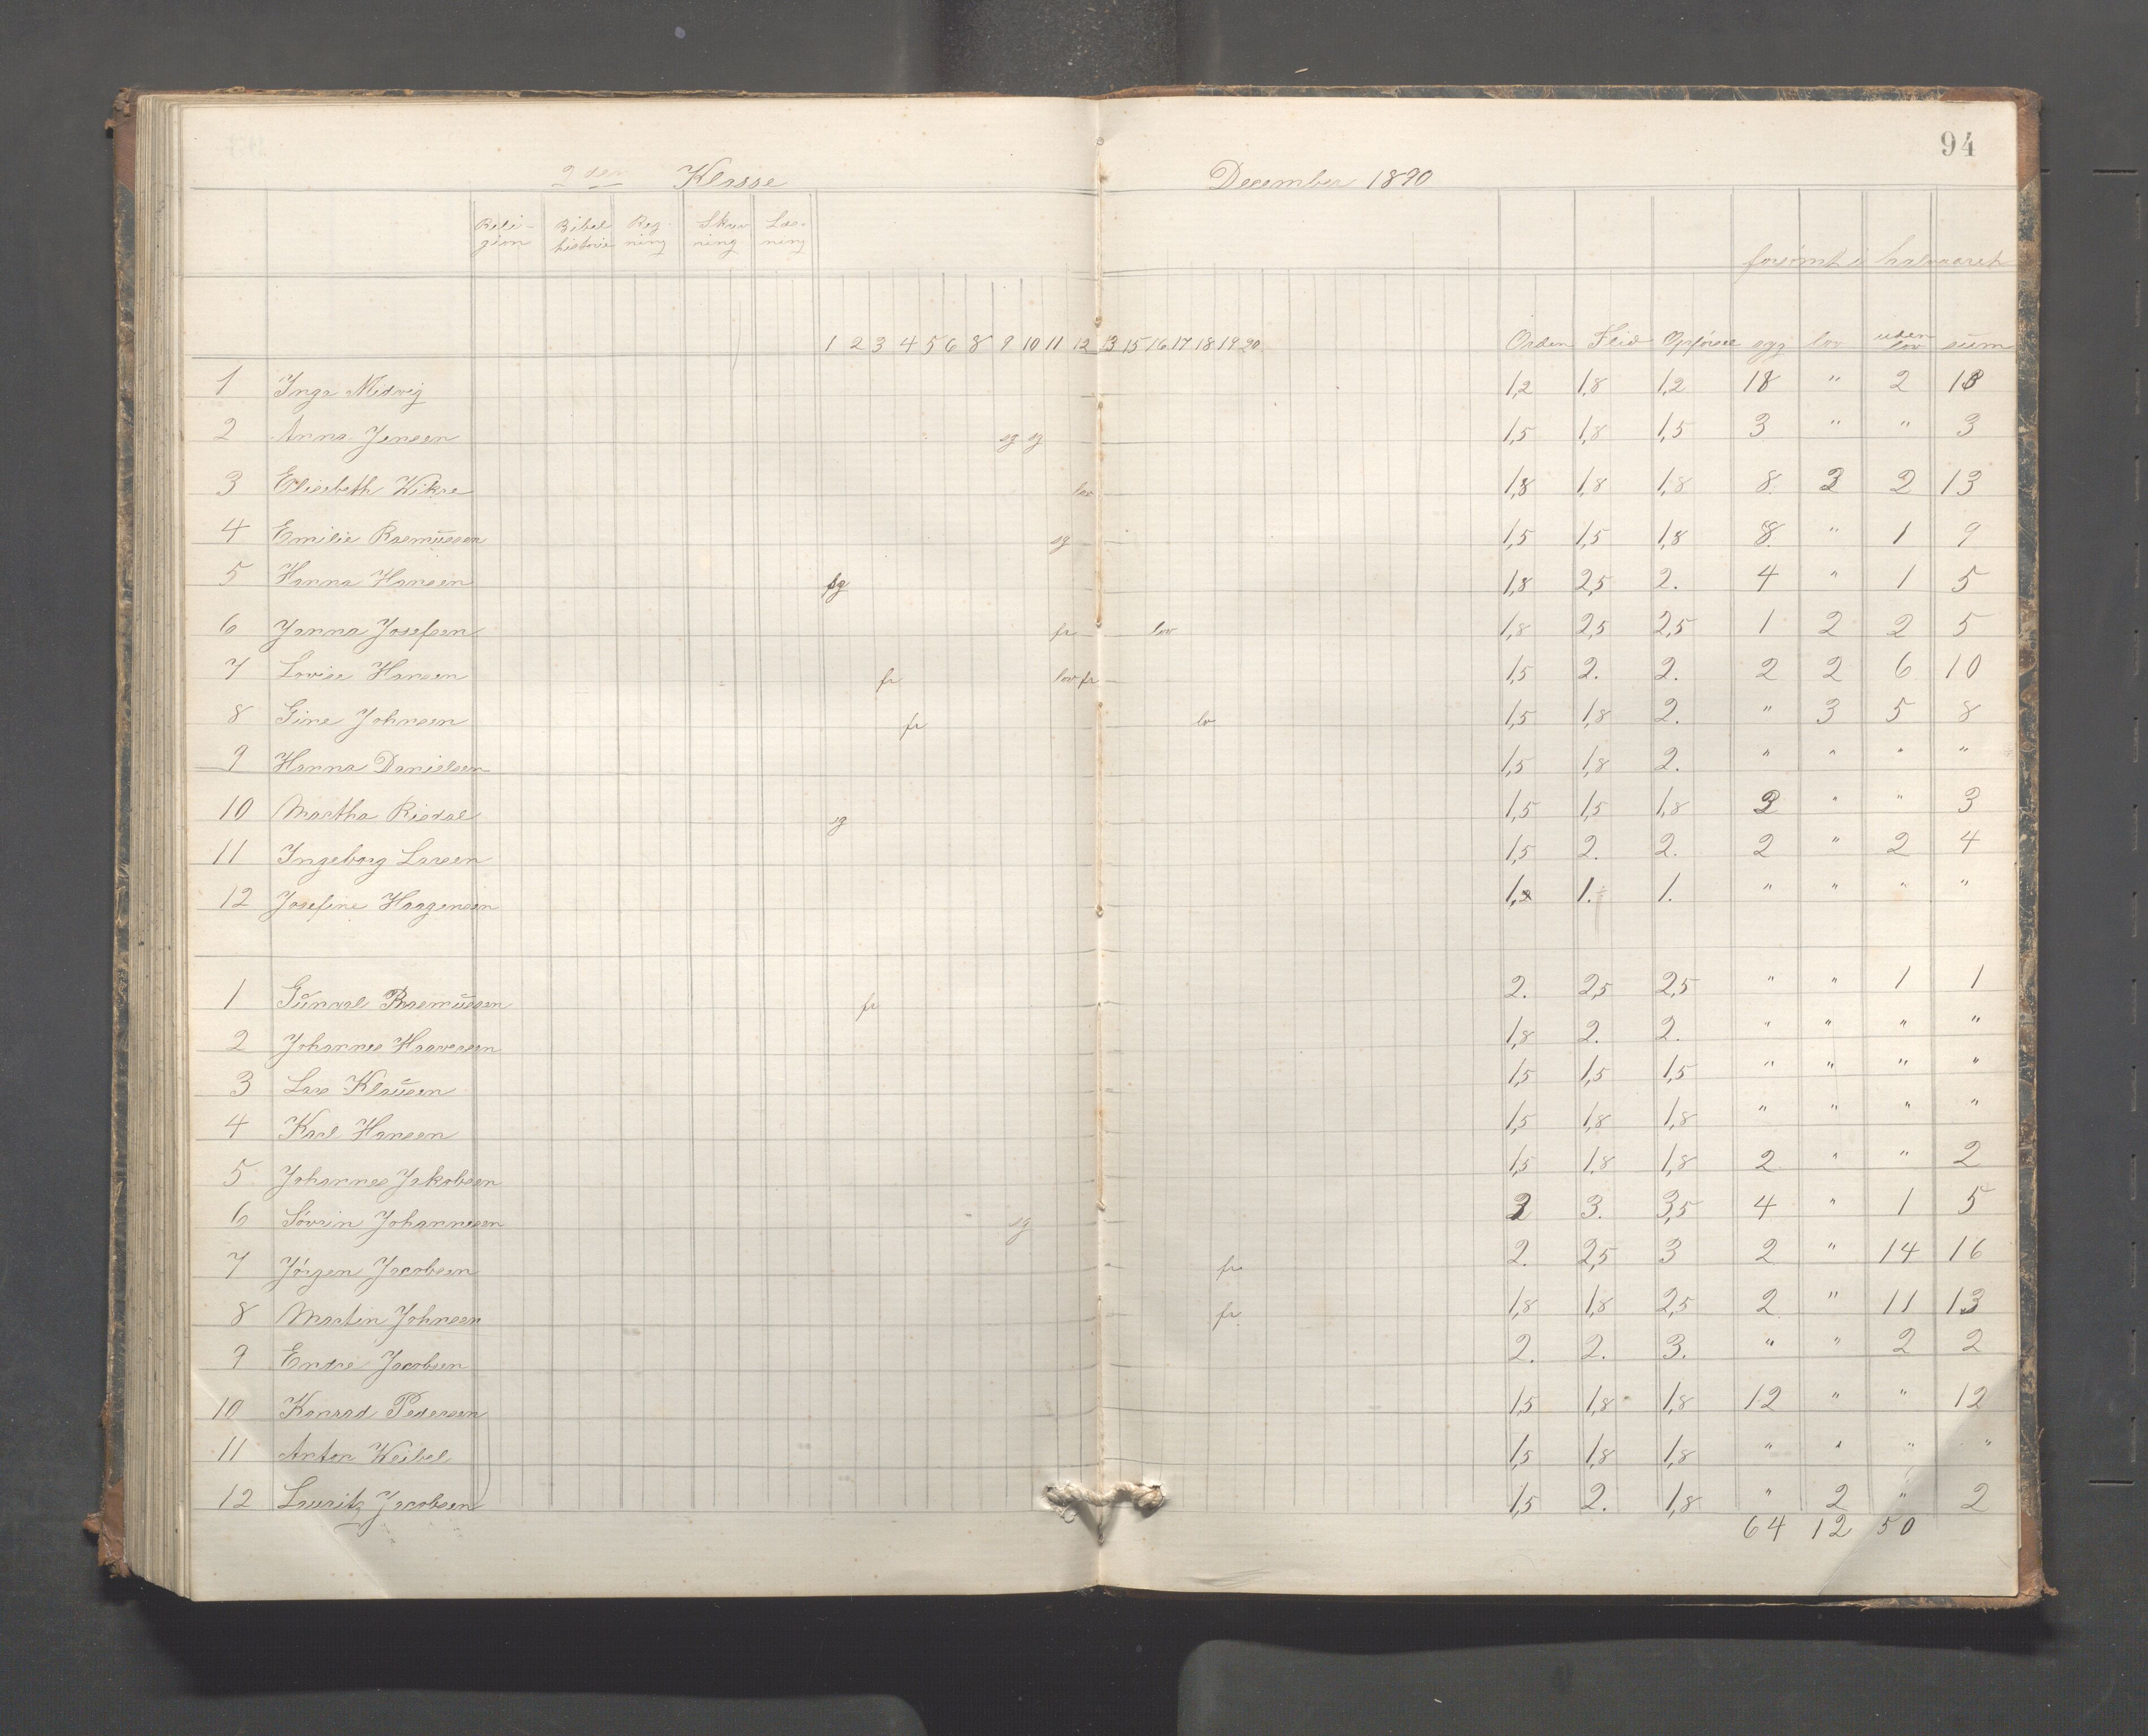 94
2den Klasse December 1890
Reli- Bibel Reg- Skriv Læs-
gion historie ning ning ning
forsømt i halvaaret
1 2 3 4 5 6 8 9 10 11 12 13 15 16 17 18 19 20 Orden Flid Opførsel syg lov uden lov sum
1 Inga Midvig 1,2 1,8 1,2 18 " 2 18
2 Anna Jensen sg sg 1,5 1,8 1,5 3 " " 3
3 Elisebeth Vikre lov 1,8 1,8 1,8 8 3 2 13
4 Emilie Rasmussen sg 1,5 1,5 1,8 8 " 1 9
5 Hanna Hansen sg 1,8 2,5 2. 4 " 1 5
6 Janna Josefsen fr lov 1,8 2,5 2,5 1 2 2 5
7 Lovise Hansen fr lov fr 1,5 2. 2. 2 2 6 10
8 Gine Johnsen fr lov 1,5 1,8 2. " 3 5 8
9 Hanna Danielsen 1,5 1,8 2. " " " "
10 Martha Risdal sg 1,5 1,5 1,8 3 " " 3
11 Ingeborg Larsen 1,5 2. 2. 2 " 2 4
12 Josefine Haagensen 1,2 1.÷ 1. " " " "
1 Gunval Rasmussen fr 2. 2,5 2,5 " " 1 1
2 Johannes Haavesen 1,8 2. 2. " " " "
3 Lars Klausen 1,5 1,5 1,5 " " " "
4 Karl Hansen 1,5 1,8 1,8 " " " "
5 Johannes Jakobsen 1,5 1,8 1,8 2 " " 2
6 Søvrin Johannesen sg 3. 3,5 4 " 1 5
7 Jørgen Jacobsen fr 2. 2,5 3 2 " 14 16
8 Martin Johnsen fr 1,8 1,8 2,5 2 " 11 13
9 Endre Jacobsen 2. 2. 3. " " 2 2
10 Konrad Pedersen 1,5 1,8 1,8 12 " " 12
11 Anton Weibel 1,5 1,8 1,8 " " " "
12 Lauritz Jacobsen 1,5 2. 1,8 " 2 " 2
64 12 50